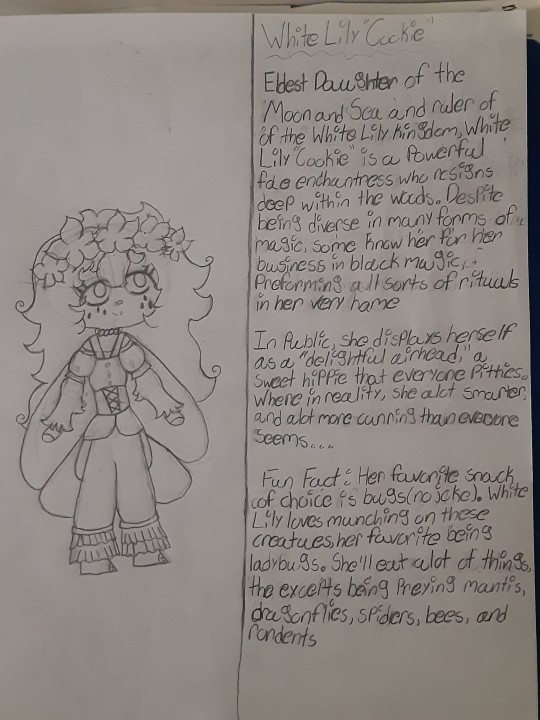 White Lily "Cookie"
Eldest Daughter of the
Moon and Sea and ruler of
of the White Lily Kingdom, White
Lily "Cookie" is a Powerful
fae enchantress who resigns
deep within the woods. Despite
being diverse in many forms of
magic, some know her for her
business in black magic,
Preforming all sorts of rituals
in her very home
In Public, she displays herself
as a "delightful airhead," a
sweet hippie that everyone Pitties.
Where in reality, she alot smarter,
and alot more cunning than everyone
seems...
Fun Fact: Her favorite snack
of choice is bugs (no joke). White
Lily loves munching on these
creatues, her favorite being
ladybugs. She'll eat alot of things,
the excepts being Preying mantis,
dragonflies, spiders, bees, and
rondents